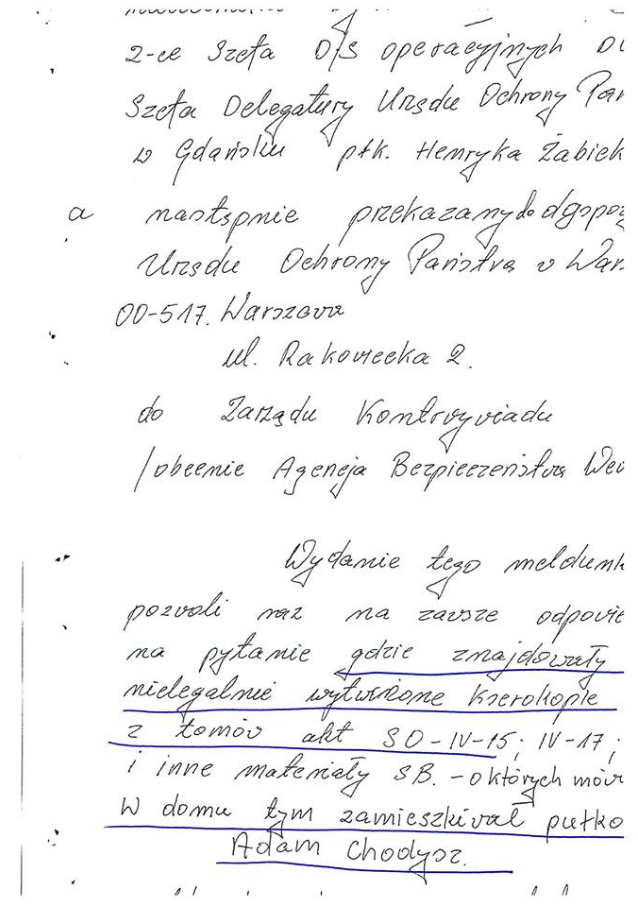 2-ce Szefa D/S operacyjnych
Szefa Delegatury Urzędu Ochrony Pań
w Gdańsku płk. Henryka Żabick
a następnie przekazany do dyspoz
Urzędu Ochrony Państwa w War
00-517. Warszawa
ul. Rakowiecka 2.
do Zarządu Kontrwywiadu
/obecnie Agencja Bezpieczeństwa Wew
Wydanie tego meldunk
pozwoli raz na zawsze odpowie
na pytanie gdzie znajdowały
nielegalnie wytworzone kserokopie
z tomów akt SO-IV-15; IV-17;
i inne materiały SB. - o których mów
W domu tym zamieszkiwał pułko
Adam Chodysz.